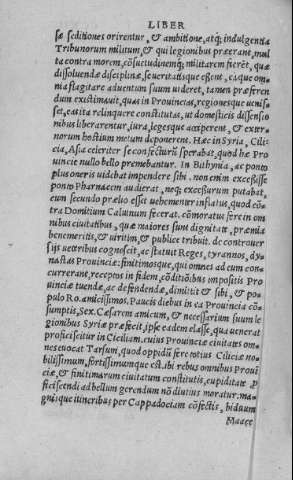 LIBER
sæ seditiones orirentur, & ambitione, atq; indulgentia
Tribunorum militum, & qui legionibus præerant, mul
ta contra morem, cōsuetudinemq; militarem fierēt, quæ
dissoluendæ disciplinæ, seueritatisque essent, eaque om-
nia flagitare aduentum suum uideret, tamen præferen
dum existimauit, quas in Prouincias, regionesque uenis
set, eas ita relinquere constitutas, ut domesticis dissensio
nibus liberarentur, iura, legesque acciperent, & exter-
norum hostium metum deponerent. Hæc in Syria, Cili-
cia, Asia celeriter se confecturū sperabat, quod hæ Pro
uinciæ nullo bello premebantur. In Bithynia, ac ponto
plus oneris uidebat impendere sibi. non enim excessisse
ponto Pharnacem audierat, neq; excessurum putabat,
cum secundo prælio esset uehementer inflatus, quod cōn
tra Domitium Caluinum fecerat. cōmoratus fere in om
nibus ciuitatibus, quæ maiores sunt dignitate, præmia
benemeritis, & uiritim, & publice tribuit. de controuer
sijs ueteribus cognoscit, ac statuit Reges, tyrannos, dy-
nastas Prouinciæ finitimosque, qui omnes ad eum con-
currerant, receptos in fidem, cōditiōibus impositis Pro
uinciæ tuendæ, ac defendendæ, dimittit & sibi, & po-
pulo Ro. amicissimos. Paucis diebus in ea Prouincia cō-
sumptis, Sex. Cæsarem amicum, & necessarium suum le
gionibus Syriæ præfecit, ipse eadem classe, qua uenerat
proficiscitur in Ciliciam. cuius Prouinciæ ciuitates om-
nes euocat Tarsum, quod oppidū fere totius Ciliciæ no-
bilissimum, fortissimumque est. ibi rebus omnibus Prouī
ciæ, & finitimarum ciuitatum constitutis, cupiditate p
ficiscendi ad bellum gerendum nō diutius moratur. ma-
gnisque itineribus per Cappadociam cōfectis, biduum
Mazacæ